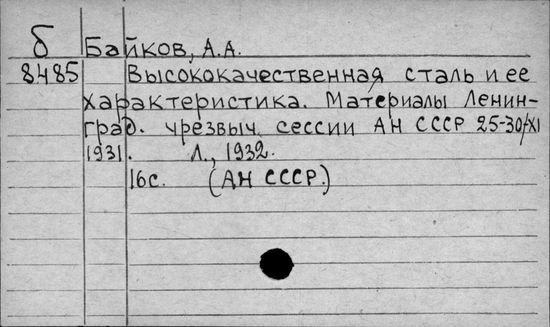 б Байков, А.А.
8485 Высококачественная сталь и ее
характеристика. Материалы Ленин-
град. чрезвыч. сессии АН СССР 25-30/XI
1931. Л., 1932.
16с. (АН СССР.)